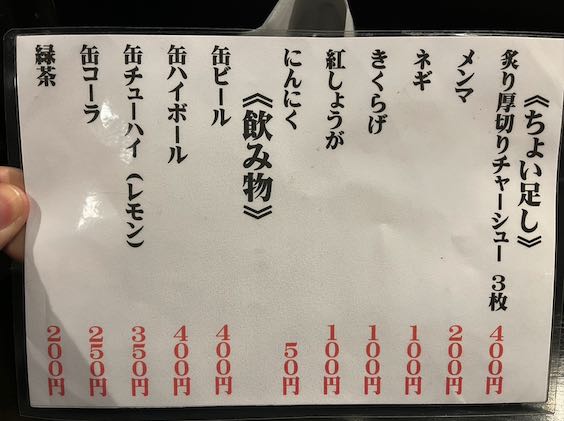 《ちょい足し》
炙り厚切りチャーシュー 3枚 400円
メンマ 200円
ネギ 100円
きくらげ 100円
紅しょうが 100円
にんにく 50円
《飲み物》
缶ビール 400円
缶ハイボール 400円
缶チューハイ（レモン） 350円
缶コーラ 250円
緑茶 200円